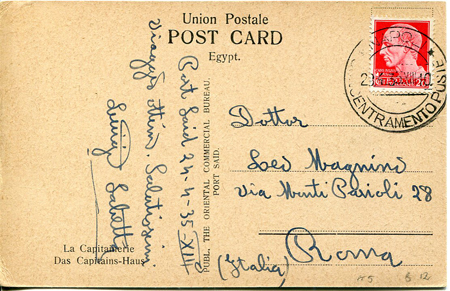 Union Postale
POST CARD
Egypt.
Port Said 24-4-35-XIII
Viaggio ottimo. Salutissimi
Luigi
PUBL. THE ORIENTAL COMMERCIAL BUREAU.
PORT SAID.
La Capitainerie
Das Capitains-Haus
CENTRAMENTO POSTE
Dottor
Leo Magnino
Via Monti Parioli 28
Roma
(Italia)